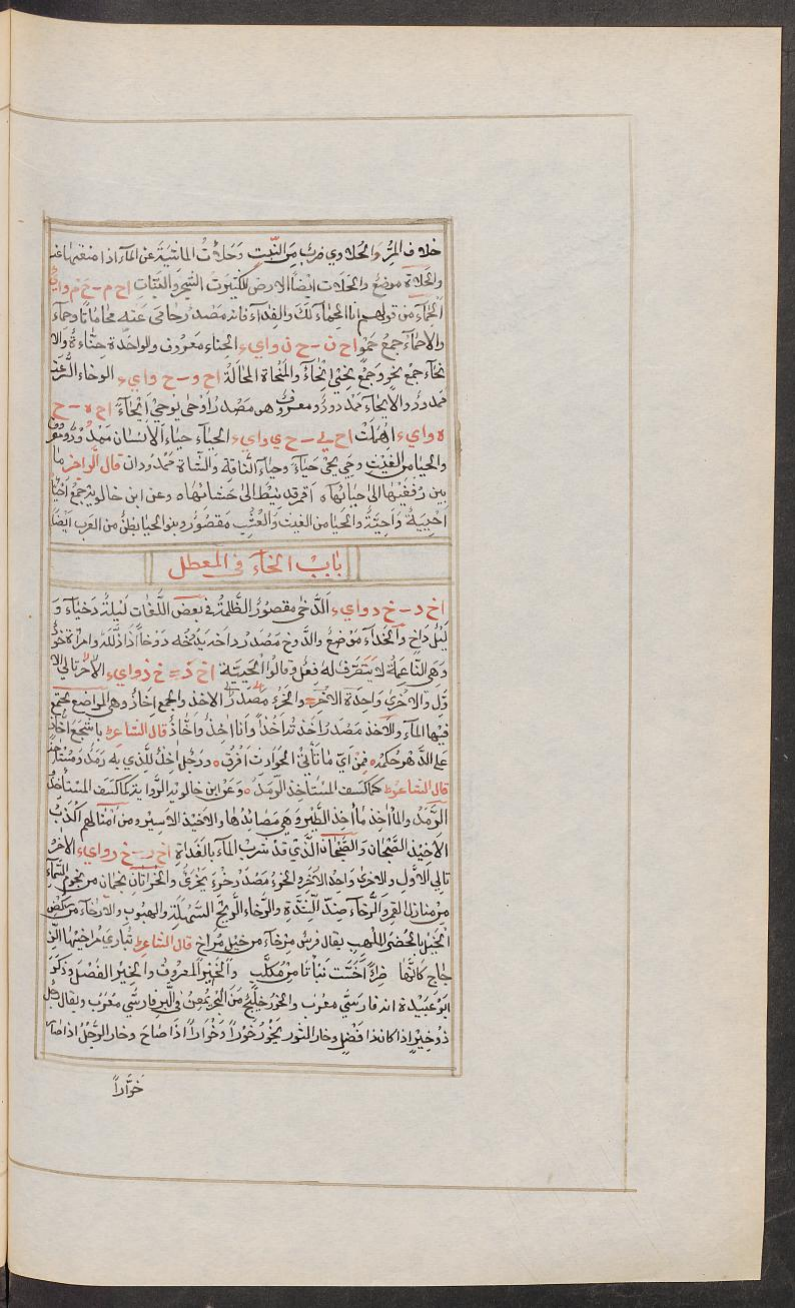 خلاف المرّ والحلاوي ضرب من النبت وحلّأت الماشية عن الماء اذا منعتها عنه
والحلاة موضع والحلاءت ايضًا الارض الكثيرة الشجر والنبات اح م – ح م واي
الحماء من قولهم انا الحماء لك والفداء فانه مصدر حامى عنه محاماتًا وحماء
والاحماء جمع حمو اح ن – ح ن واي الحناء معروف والواحدة حناءة والا
نحاء جمع نحو وجمع نحي انحاء والمنحاة المحالة اح و – ح واي الوحاء السرعة
ممدود والايحاء ممدود ومعروف هو مصدر اوحى يوحي ايحاءً اح ه – ح
ه واي اهملت اح ي – ح ي واي الحياء حياء الانسان ممدود ومعروف
والحيا من الغيث وحي يحيى حياة وحياء الناقة والشاة ممدودان قال الراجز ما
بين رفغيها الى حيائها اقمر قد نيط الى حشائها وعن ابن خالويه جمع احيا
احيية واحيّة والحيا من الغيث والعشب مقصور وبنو الحيا بطن من العرب ايضًا
باب الخاء في المعطل
اخ د – خ د واي الدخى مقصور الظلمة في بعض اللغات ليلة دخياء و
ليل داخ والخداء موضع والدوخ مصدر داخه يدوخه دوخًا اذا ذلّله وامراة خود
وهي الناعمة لا يتصرف له فعل وقالوا الحيية اخ ذ – خ ذ واي الاخر تالي الا
وّل والاخرى واحدة الاخر والاخذ مصدر الاخذ والجمع اخاذ وهي المواضع يجتمع
فيها الماء والاخذ مصدر اخذ تاخذ اخذًا وانا اخذ واخّاذ قال الشاعر باشجع اخّاذ
على الدهر حكمه فمن اي ما تأتي الحوادث افرق ورجل اخذ للذي به رمد ومستاخذ
قال الشاعر كما كسف المستاخذ الرمد وعن ابن خالويه الرواية كما كسف المستاخذ
الرمد والمآخذ مآخذ الطير وهي مصائدها والاخيذ الاسير ومن امثالهم اكذب
الاخيذ الصبحان والصبحان الذي قد شرب الماء بالغداة اخ ر – خ ر واي الاخر
تالي الاول والاخرى واحد الاخر والخرء مصدر خرئ يخرئ والخراتان نجمان من نجوم السماء
من منازل القمر والرخاء ضد الشدة والرخاء الريح السهلة والهبوب والارخاء من ركض
الخيل بالحضر الملهب يقال فرس مرخاء من خيل مراخ قال الشاعر تباري مراخيها الزّ
جاج كانّها ضراء احسّت نبأتا من مكلّب والخير المعروف والخير الفضل وذكر
ابو عبيدة انه فارسي معرب والخور خليج من البحر يمعن في البر فارسي معرب ويقال رجل
ذو خير اذا كان ذا فضل وخار الثور يخور خورًا وخوارًا اذا صاح وخار الرجل اذا صار
خوّارًا